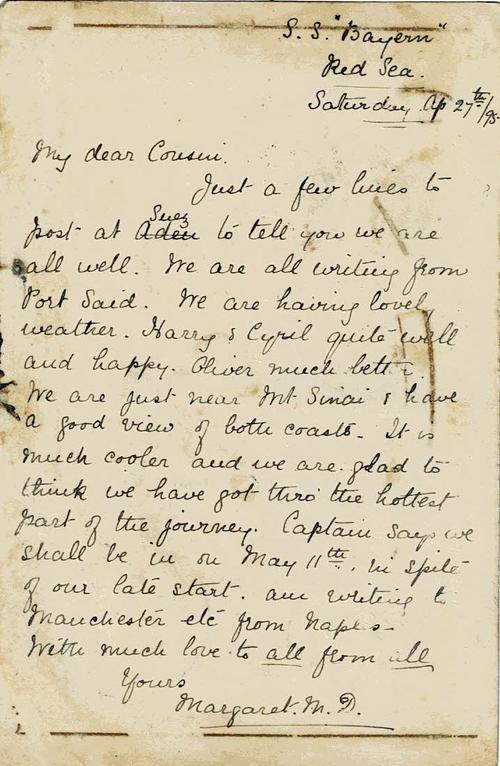 S.S. "Bayern"
Red Sea.
Saturday Ap 27th/95
My dear Cousin.
Just a few lines to
Suez
post at Aden to tell you we are
all well. We are all writing from
Port Said. We are having lovely
weather. Harry & Cyril quite well
and happy. Oliver much better.
We are just near Mt Sinai & have
a good view of both coasts. It is
much cooler and we are glad to
think we have got thro' the hottest
part of the journey. Captain says we
shall be in on May 11th. in spite
of our late start. am writing to
Manchester etc from Naples –
With much love to all from all
Yours
Margaret. M. D.